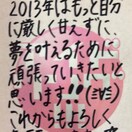 2013年はもっと自分
に厳しく甘えずに、
夢を叶えるために
頑張っていきたいと
思います!! (≧∀≦)
これからもよろしく